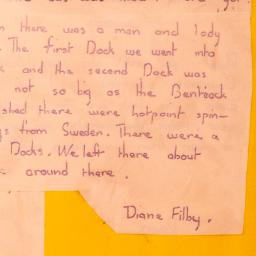 there was a man and lady
The first Dock we went into
and the second Dock was
not so big as the Bentrock
shed there were hotpoint spin-
s from Sweden. There were a
Docks. We left there about
around there.
Diane Filby.